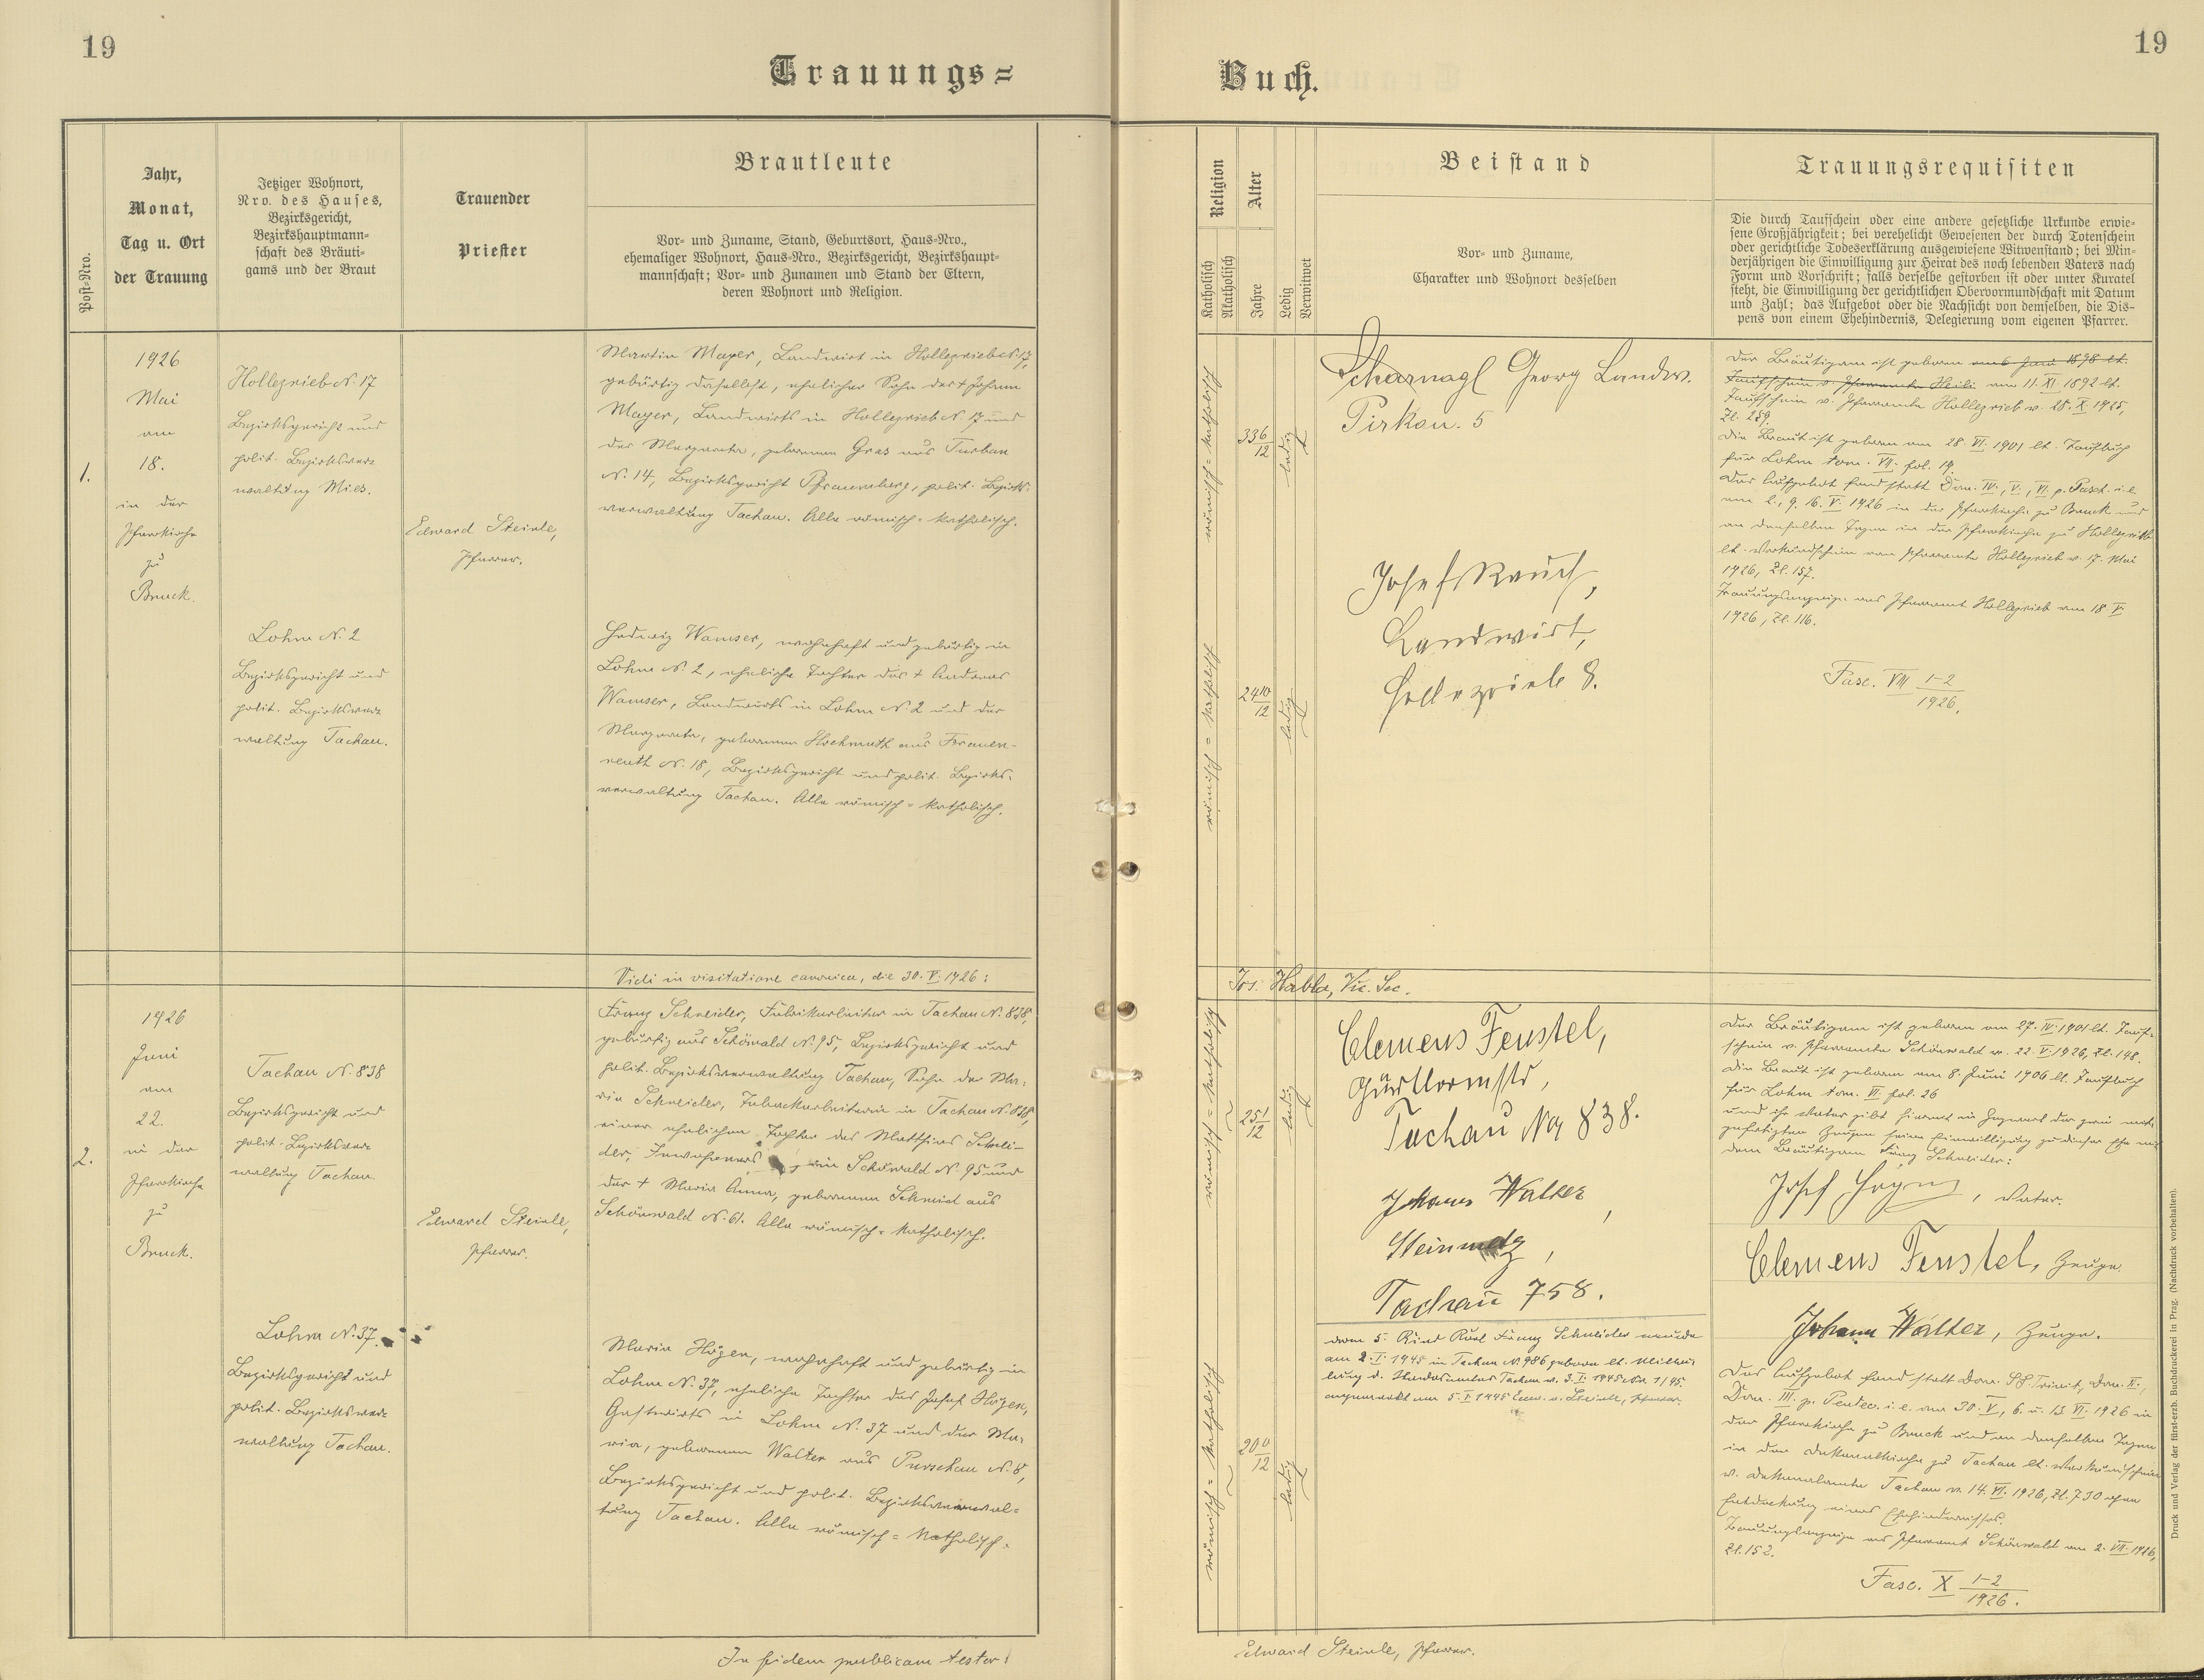 19
19
Trauungs=
Buch.
Post-Nro.
Jahr,
Monat,
Tag u. Ort
der Trauung
Jetziger Wohnort,
Nro. des Hauses,
Bezirksgericht,
Bezirkshauptmann=
schaft des Bräuti=
gams und der Braut
Trauender
Priester
Brautleute
Vor- und Zuname, Stand, Geburtsort, Haus-Nro.,
ehemaliger Wohnort, Haus-Nro., Bezirksgericht, Bezirkshaupt=
mannschaft; Vor- und Zunamen und Stand der Eltern,
deren Wohnort und Religion.
Religion
Katholisch
Akatholisch
Alter
Jahre
Ledig
Verwitwet
Beistand
Vor- und Zuname,
Charakter und Wohnort desselben
Trauungsrequisiten
Die durch Taufschein oder eine andere gesetzliche Urkunde erwie=
sene Großjährigkeit; bei verehelicht Gewesenen der durch Totenschein
oder gerichtliche Todeserklärung ausgewiesene Witwenstand; bei Min=
derjährigen die Einwilligung zur Heirat des noch lebenden Vaters nach
Form und Vorschrift; falls derselbe gestorben ist oder unter Kuratel
steht, die Einwilligung der gerichtlichen Obervormundschaft mit Datum
und Zahl; das Aufgebot oder die Nachsicht von demselben, die Dis=
pens von einem Ehehindernis, Delegierung vom eigenen Pfarrer.
1.
1926
Mai
am
18.
in der
Pfarrkirche
zu
Bruck.
Hollezrieb N. 17
Bezirksgericht und
polit. Bezirksver=
waltung Mies.
Lohm N. 2
Bezirksgericht und
polit. Bezirksver=
waltung Tachau.
Edward Steinle,
Pfarrer.
Martin Mayer, Landwirt in Hollezrieb N. 17,
gebürtig daselbst, ehelicher Sohn des + Johann
Mayer, Landwirts in Hollezrieb N. 17 und
der Margareta, geborenen Gras aus Turban
N. 14, Bezirksgericht Pfraumberg, polit. Bezirks=
verwaltung Tachau. Alle römisch=katholisch.
Hedwig Wamser, wohnhaft und gebürtig in
Lohm N. 2, eheliche Tochter des + Andreas
Wamser, Landwirts in Lohm N. 2 und der
Margareta, geborenen Hochmuth aus Frauen-
reuth N. 18, Bezirksgericht und polit. Bezirks=
verwaltung Tachau. Alle römisch=katholisch.
römisch=katholisch
römisch=katholisch
33 6/12
24 10/12
ledig
ledig
Scharnagl Georg Landw.
Pirkau. 5
Josef Rauch,
Landwirt,
Hollezrieb 8.
Der Bräutigam ist geboren am 6. Juni 1898 lt.
Taufschein v. Pfarramte Heili am 11. XI. 1892 lt.
Taufschein v. Pfarramte Hollezrieb v. 28. X. 1925,
Zl. 259.
Die Braut ist geboren am 28. VI. 1901 lt. Taufbuch
für Lohm tom. VII. fol. 19.
Das Aufgebot fand statt Dom. IV., V., VI. p. Pasch. i. e.
am 2., 9. 16. V. 1926 in der Pfarrkirche zu Bruck und
an denselben Tagen in der Pfarrkirche zu Hollezrieb
lt. Verkündschein vom Pfarramte Hollezrieb v. 17. Mai
1926, Zl. 157.
Trauungsanzeige ans Pfarramt Hollezrieb am 18. V.
1926, Zl. 116.
Fasc. VIII 1-2/1926.
Vidi in visitatione canonica, die 30. V. 1926:
Jos. Habla, Vic. Sec.
2.
1926
Juni
am
22.
in der
Pfarrkirche
zu
Bruck.
Tachau N. 838
Bezirksgericht und
polit. Bezirksver=
waltung Tachau.
Lohm N. 37.
Bezirksgericht und
polit. Bezirksver=
waltung Tachau.
Edward Steinle,
Pfarrer.
Franz Schneider, Fabriksarbeiter in Tachau N. 838,
gebürtig aus Schönwald N. 95, Bezirksgericht und
polit. Bezirksverwaltung Tachau, Sohn der Ma=
rie Schneider, Tabackarbeiterin in Tachau N. 838,
einer ehelichen Tochter des Matthias Schnei=
der, Inwohners in Schönwald N. 95 und
der + Maria Anna, geborenen Schmid aus
Schönwald N. 61. Alle römisch=katholisch.
Marie Högen, wohnhaft und gebürtig in
Lohm N. 37, eheliche Tochter des Josef Högen,
Gastwirts in Lohm N. 37 und der Ma=
ria, geborenen Walter aus Purschau N. 8,
Bezirksgericht und polit. Bezirksverwal=
tung Tachau. Alle römisch=katholisch.
römisch=katholisch
römisch=katholisch
25 1/12
20 0/12
ledig
ledig
Clemens Fenstel,
Tachau No 838.
Johann Walter,
Steinmetz,
Tachau 758.
dem 5. Kind Karl Franz Schneider wurde
am 2. I. 1945 in Tachau N. 986 geboren lt. Mittei=
lung d. Standesamtes Tachau v. 3. I. 1945 Nr. 1/45.
angemerkt am 5. I. 1945 Edw. v. Steinle, Pfarrer.
Der Bräutigam ist geboren am 27. IV. 1901 lt. Tauf=
schein v. Pfarramte Schönwald v. 22. V. 1926, Zl. 148.
Die Braut ist geboren am 8. Juni 1906 lt. Taufbuch
für Lohm tom. VI. fol. 26
und ihr Vater gibt hiermit in Gegenwart der zwei mit=
gefertigten Zeugen seine Einwilligung zu dieser Ehe mit
dem Bräutigam Franz Schneider:
Josef Högen, Vater.
Clemens Fenstel, Zeuge
Johann Walter, Zeuge.
Das Aufgebot fand statt Dom. SS. Trinit., Dom. II.,
Dom. III. p. Pentec. i. e. am 30. V., 6. u. 13. VI. 1926 in
der Pfarrkirche zu Bruck und an denselben Tagen
in der Dekanalkirche zu Tachau lt. Verkündschein
v. Dekanalamte Tachau v. 14. VI. 1926, Zl. 730 ohne
Entdeckung eines Ehehindernisses.
Trauungsanzeige ans Pfarramt Schönwald am 2. VII. 1926,
Zl. 152.
Fasc. X 1-2/1926.
In fidem publicam testor:
Edward Steinle, Pfarrer.
Druck und Verlag der fürst-erzb. Buchdruckerei in Prag. (Nachdruck vorbehalten).